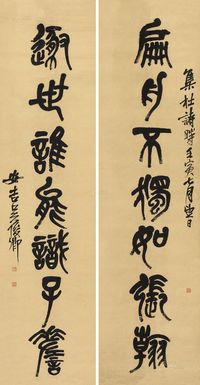 集杜詩時壬寅七月望日
扁舟不獨如張翰
遯世誰能識子
安吉吳俊卿